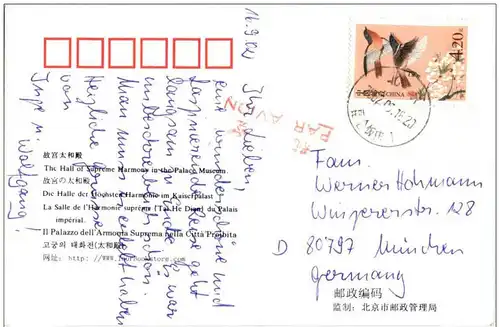 16.9.02
Ihr Lieben,
eine wunderschöne und
faszinierende Reise geht
langsam zu Ende. Es war
unbeschreiblich schön.
Man muss es erlebt haben
Herzliche Grüsse
von
Inge u. Wolfgang!
故宫太和殿
The Hall of Supreme Harmony in the Palace Museum.
故宮の太和殿
Die Halle der Höchsten Harmonie im Kaiserpalast
La Salle de l'Harmonie suprême (Tai He Dian) du Palais
impérial.
Il Palazzo dell'Armonia Suprema nella Città Proibita
고궁의 태화전(太和殿)
网址:
PAR AVION
中国邮政 CHINA
4.20
Fam.
Werner Hohmann
Winzererstr. 128
D 80797 München
Germany
邮政编码
监制：北京市邮政管理局